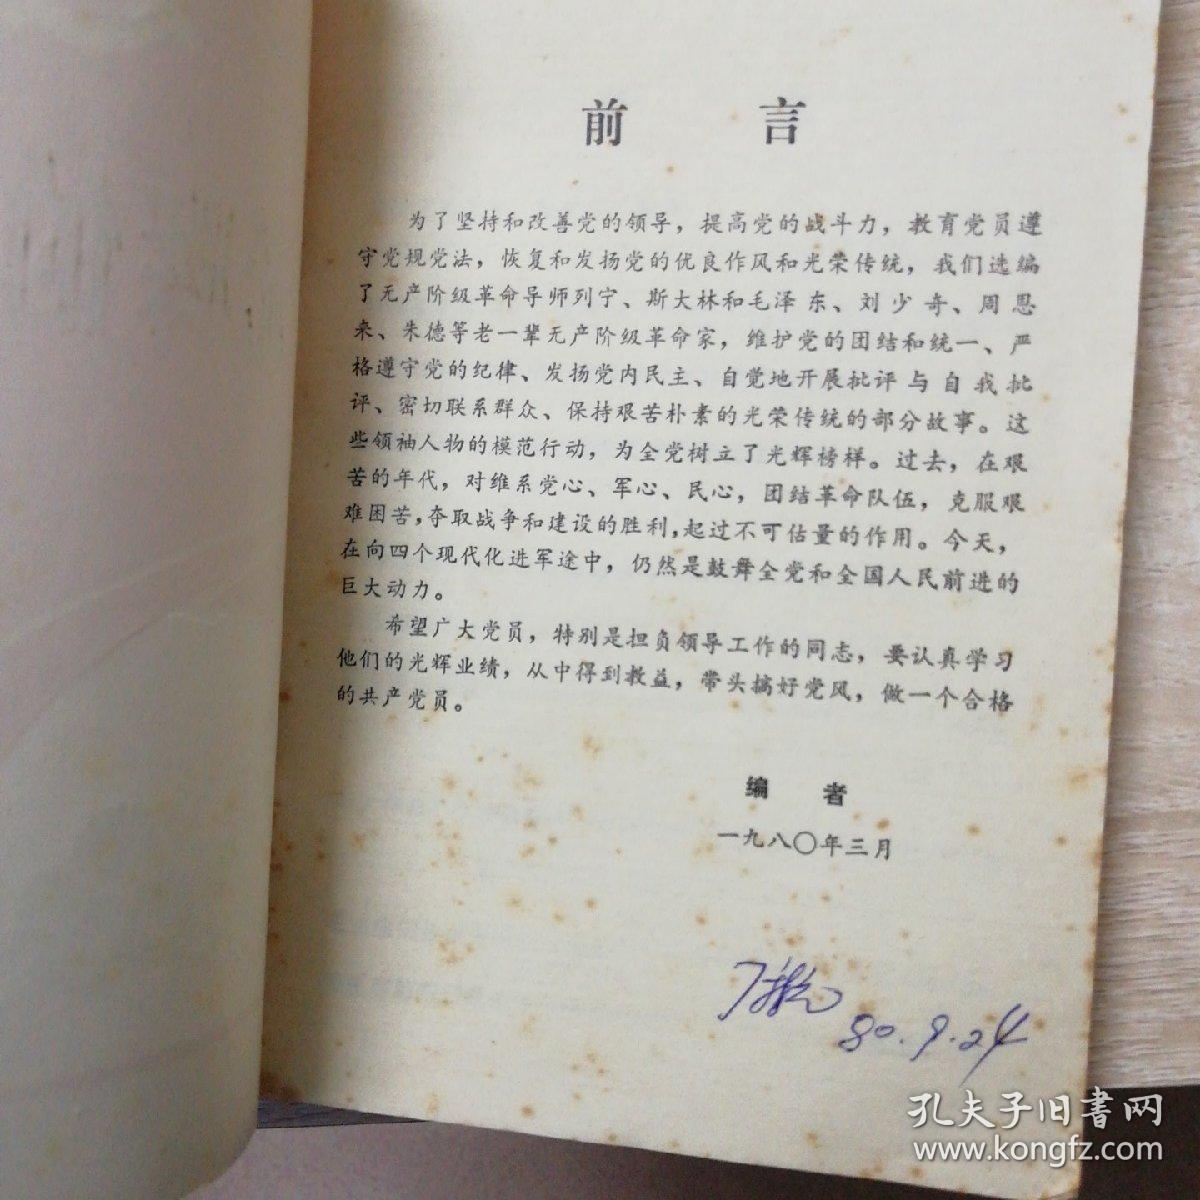 前言
为了坚持和改善党的领导，提高党的战斗力，教育党员遵
守党规党法，恢复和发扬党的优良作风和光荣传统，我们选编
了无产阶级革命导师列宁、斯大林和毛泽东、刘少奇、周恩
来、朱德等老一辈无产阶级革命家，维护党的团结和统一、严
格遵守党的纪律、发扬党内民主、自觉地开展批评与自我批
评、密切联系群众、保持艰苦朴素的光荣传统的部分故事。这
些领袖人物的模范行动，为全党树立了光辉榜样。过去，在艰
苦的年代，对维系党心、军心、民心，团结革命队伍，克服艰
难困苦，夺取战争和建设的胜利，起过不可估量的作用。今天，
在向四个现代化进军途中，仍然是鼓舞全党和全国人民前进的
巨大动力。
希望广大党员，特别是担负领导工作的同志，要认真学习
他们的光辉业绩，从中得到教益，带头搞好党风，做一个合格
的共产党员。
编者
一九八〇年三月
80.9.24
孔夫子旧书网
www.kongfz.com